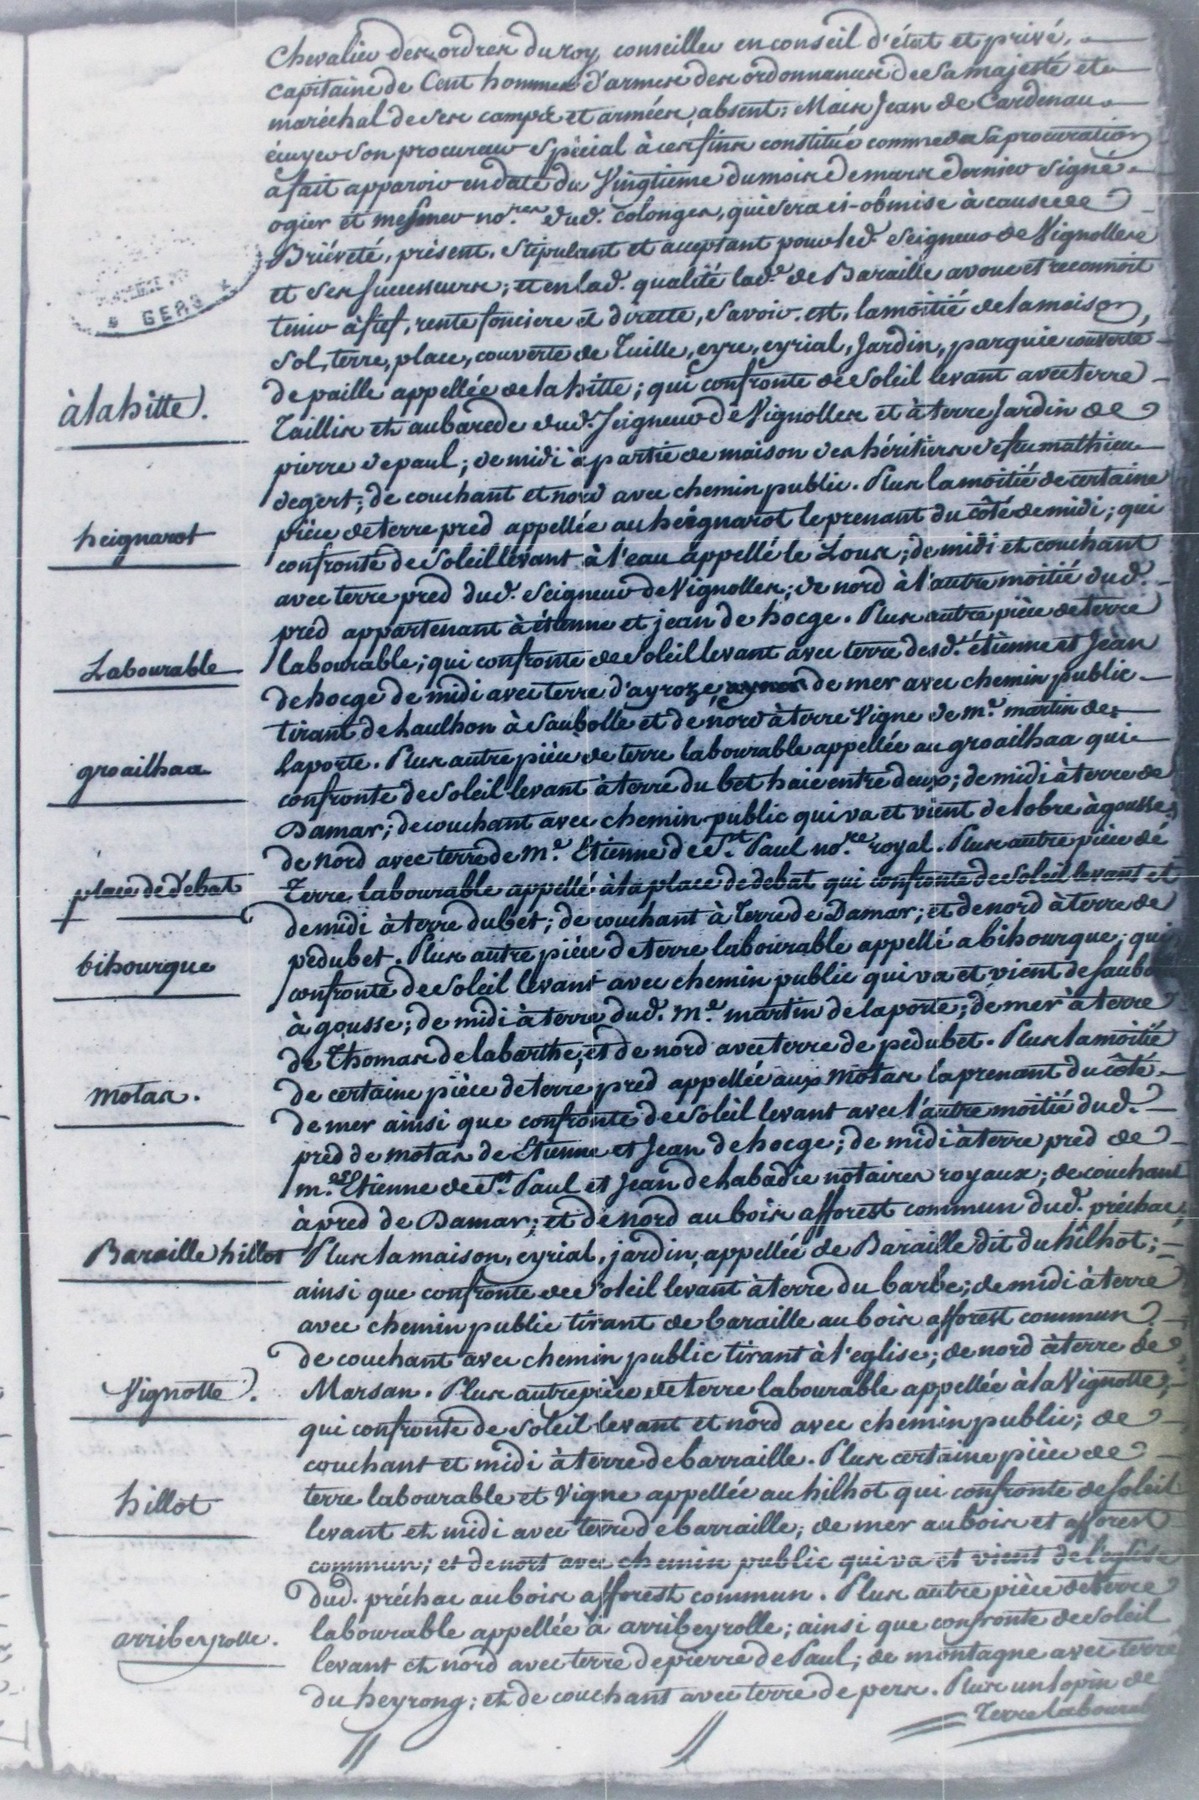 Chevalier des ordres du roy, conseiller en conseil d'état et privé,
capitaine de Cent hommes d'armes des ordonnances de Sa majesté et
maréchal de ses camps et armées, absent; Mais Jean de Cardenau
écuyer son procureur Spécial à ces fins constitué comme de sa procuration
a fait apparoir en date du Vingtième du mois de mars dernier signé
ogier et mesmer no.res dud. colonges, qui sera ci-obmise à cause de
Briéveté, présent, stipulant et aceptant pour led. Seigneur de Vignolles
et ses successeurs; et en lad. qualité lad.e de Baraille avoue et reconnoit
tenir à fief, rente fonciere et directe, Savoir est, la moitié de la maison,
Sol, terre, place, couverte de Tuille, eyre, eyrial, Jardin, parguie couverte
à la hitte.
de paille appellée de la hitte; qui confronte de Soleil levant avec terre
Taillis et aubarede dud. Seigneur de Vignolles et à terre Jardin de
pierre depaul; de midi à partie de maison des héritiers de feu mathieu
degert; de couchant et nord avec chemin public. Plus la moitié de certaine
heignarot
pièce de terre pred appellée au heignarot le prenant du côté de midi; qui
confronte de Soleil levant à l'eau appellé le Lous; de midi et couchant
avec terre pred dud. Seigneur de Vignolles; de nord à l'autre moitié dud.
pred appartenant à étienne et jean de hocge. Plus autre pièce de terre
Labourable
labourable; qui confronte de Soleil levant avec terre desd. étienne et Jean
de hocge de midi avec terre d'ayroze de mer avec chemin public
tirant de haulhon à Saubolle et de nord à terre Vigne de m.e martin de
groailhaa
Laporte. Plus autre pièce de terre labourable appellée au groailhaa qui
confronte de Soleil levant à terre du bet haie entre deux; de midi à terre de
Damar; de couchant avec chemin public qui va et vient de lobre à gousse;
de nord avec terre de M.e Etienne de S.t Paul no.re royal. Plus autre pièce de
place de débat
Terre labourable appellé à la place de debat qui confronte de Soleil levant et
de midi à terre du bet; de couchant à Terre de Damar; et de nord à terre de
bihourque
pedubet. Plus autre pièce de terre labourable appellé a bihourque; qui
confronte de Soleil levant avec chemin public qui va et vient de
à gousse; de midi à terre dud. M.e martin de laporte; de mer à terre
de Thomas de labarthe; et de nord avec terre de pedubet. Plus la moitié
motas.
de certaine pièce de terre pred appellée aux motas la prenant du côté
de mer ainsi que confronte de Soleil levant avec l'autre moitié dud.
pred de motas de Etienne et Jean de hocge; de midi à terre pred de
m.es Etienne de S.t Paul et Jean de Labadie notaires royaux; de couchant
à pred de Damar; et de nord au bois afforest commun dud. préchac;
Baraille hillot
Plus la maison, eyrial, jardin, appellée de Baraille dit du hilhot;
ainsi que confronte de Soleil levant à terre du barbe; de midi à terre
avec chemin public tirant de baraille au bois afforest commun
de couchant avec chemin public tirant à l'eglise; de nord à terre de
Vignotte.
Marsan. Plus autre pièce de terre labourable appellée à la Vignotte;
qui confronte de Soleil levant et nord avec chemin public; de
couchant et midi à terre de barraille. Plus certaine pièce de
hillot
terre labourable et Vigne appellée au hilhot qui confronte de soleil
levant et midi avec terre de barraille; de mer au bois et afforest
commun; et de nort avec chemin public qui va et vient de l'eglise
dud. préchac au bois afforest commun. Plus autre pièce de terre
arribeyrolle.
labourable appellée à arribeyrolle; ainsi que confronte de Soleil
levant et nord avec terre de pierre de Paul; de montagne avec terre
du heyrong; et de couchant avec terre de pers. Plus un lopin de
Terre labourab
GERS